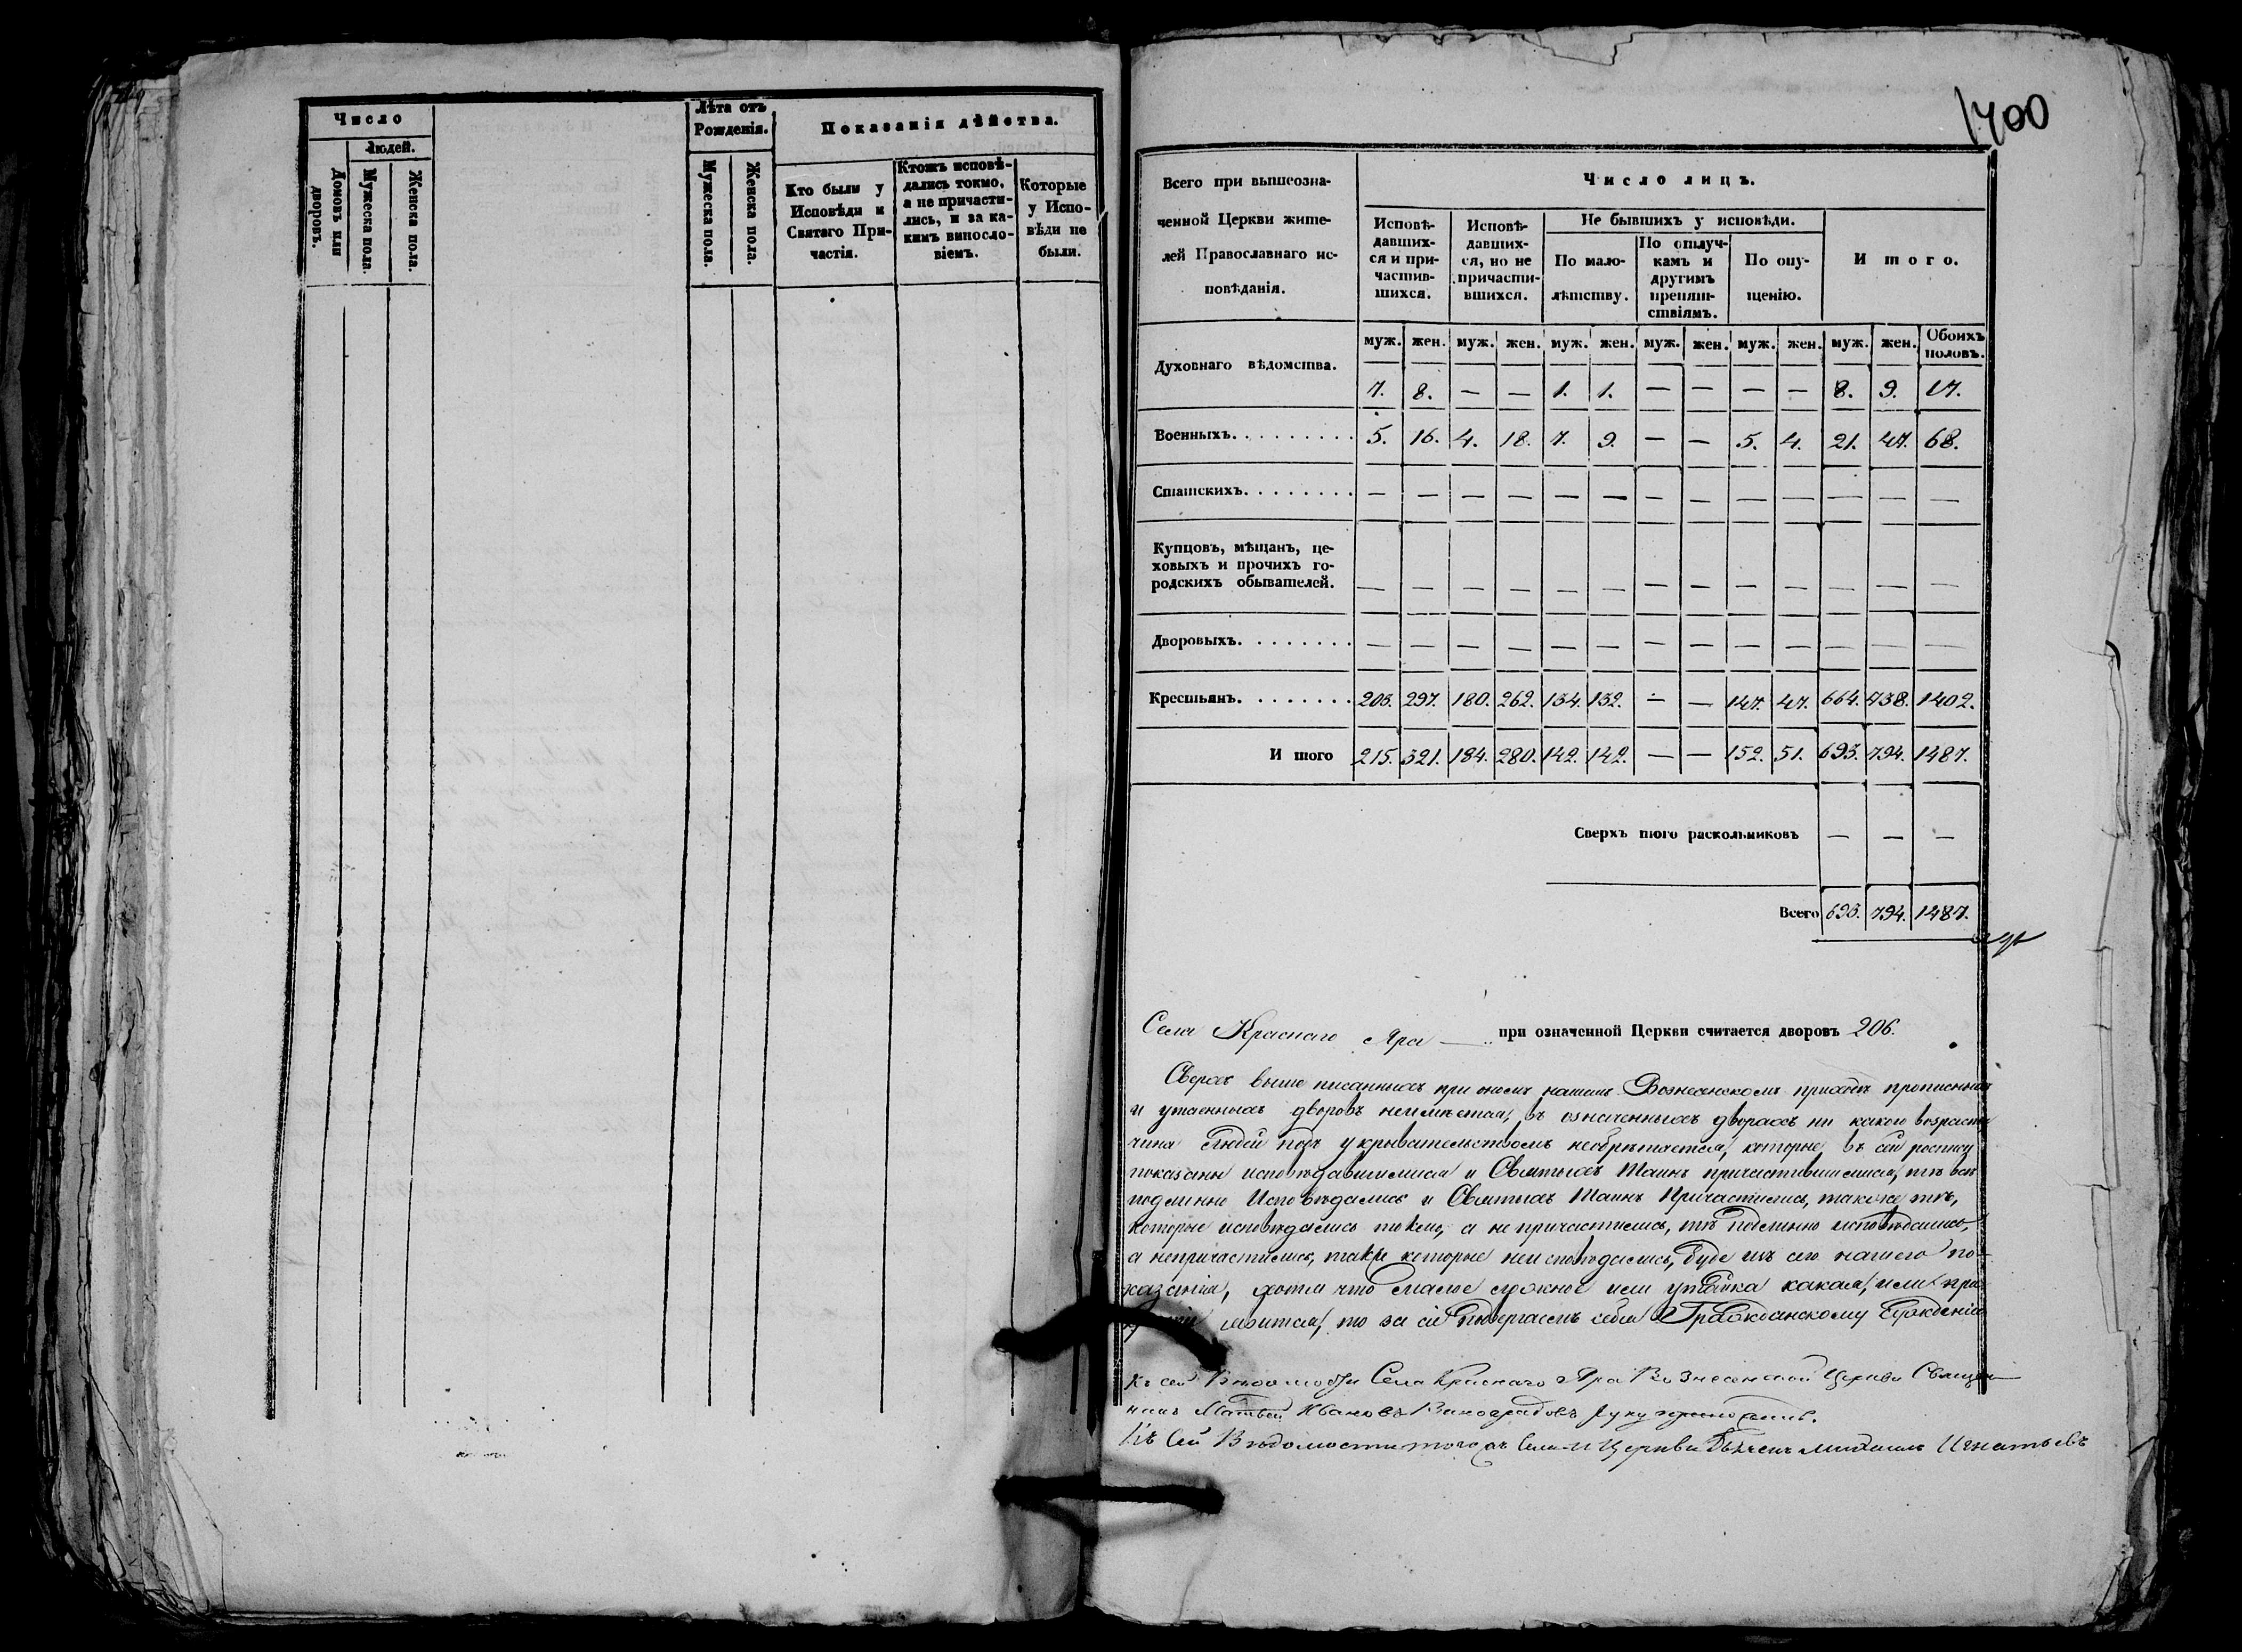 Число
Людей.
Домовъ или дворовъ.
Мужеска пола.
Женска пола.
Лѣта отъ
Рожденія.
Мужеска пола.
Женска пола.
Показанія дѣйства.
Кто были у
Исповѣди и
Святаго При-
частія.
Ктожъ исповѣ-
дались токмо,
а не причасти-
лись, и за ка-
кимъ винословіемъ.
Которые
у Испо-
вѣди не
были.
1400
Всего при вышеозна-
ченной Церкви жите-
лей Православнаго ис-
повѣданія.
Число лицъ.
Исповѣ-
давших-
ся и при-
частив-
шихся.
Исповѣ-
давших-
ся, но не
причасти-
вшихся.
Не бывшихъ у исповѣди.
По мало-
лѣтству.
По отлуч-
камъ и
другимъ
препят-
ствіямъ.
По опу-
щенію.
Итого.
муж. жен. муж. жен. муж. жен. муж. жен. муж. жен. муж. жен. Обоихъ половъ.
Духовнаго вѣдомства. 7. 8. — — 1. 1. — — — — 8. 9. 17.
Военныхъ. . . . . . . . . 5. 16. 4. 18. 7. 9. — — 5. 4. 21. 47. 68.
Статскихъ. . . . . . . . — — — — — — — — — — — — —
Купцовъ, мѣщанъ, це-
ховыхъ и прочихъ го-
родскихъ обывателей. — — — — — — — — — — — — —
Дворовыхъ. . . . . . . . — — — — — — — — — — — — —
Крестьянъ. . . . . . . . 203. 297. 180. 262. 134. 132. — — 147. 47. 664. 738. 1402.
И того 215. 321. 184. 280. 142. 142. — — 152. 51. 693. 794. 1487.
Сверхъ того раскольниковъ — — —
Всего 693. 794. 1487.
Села Краснаго Яра — при означенной Церкви считается дворовъ 206.
Сверхъ выше писанныхъ при ономъ нашемъ Вознесенскомъ приходѣ прописныхъ
и утаенныхъ дворовъ неимѣется, въ означенныхъ дворахъ ни какого возраста
чина людей подъ укрывательствомъ необрѣтается, которые въ сей росписи
показаны исповѣдавшимися и Святыхъ Таинъ причастившимися, тѣ всѣ
подлинно Исповѣдались и Святыхъ Таинъ Причастились, такоже тѣ,
которые исповѣдались токмо, а не причастились, тѣ подлинно исповѣдались,
а непричастились, также которые неисповѣдались, буде изъ сего нашего по-
казанія, хотя что малое ложное или утайка какая, или
то за сіе подвергаемъ себя Гражданскому сужденію
Къ сей Вѣдомости Села Краснаго Яра Вознесенской Церкви Священ-
никъ Матвей Ивановъ Виноградовъ руку приложилъ.
Къ сей Вѣдомости тогожъ Села и Церкви Дьячекъ Михаилъ Игнатьевъ